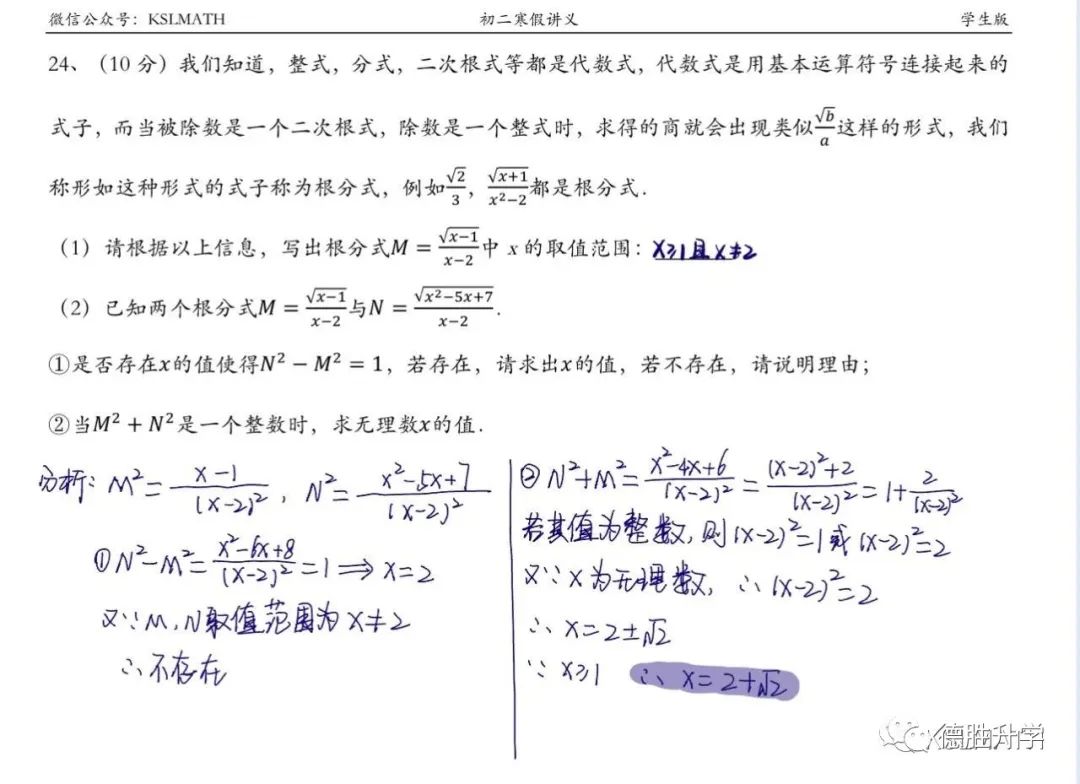 微信公众号：KSLMATH 初二寒假讲义 学生版
24、（10 分）我们知道，整式，分式，二次根式等都是代数式，代数式是用基本运算符号连接起来的
式子，而当被除数是一个二次根式，除数是一个整式时，求得的商就会出现类似√b/a这样的形式，我们
称形如这种形式的式子称为根分式，例如√2/3，√(x+1)/(x²−2)都是根分式．
（1）请根据以上信息，写出根分式M = √(x−1)/(x−2)中 x 的取值范围：x≥1且x≠2
（2）已知两个根分式M = √(x−1)/(x−2)与N = √(x²−5x+7)/(x−2)．
①是否存在x的值使得N² − M² = 1，若存在，请求出x的值，若不存在，请说明理由；
②当M² + N²是一个整数时，求无理数x的值．
分析：M²=(x−1)/(x−2)²，N²=(x²−5x+7)/(x−2)²
①N²−M²=(x²−6x+8)/(x−2)²=1⟹x=2
又∵M，N取值范围为x≠2
∴不存在
②N²+M²=(x²−4x+6)/(x−2)²=((x−2)²+2)/(x−2)²=1+2/(x−2)²
若其值为整数，则(x−2)²=1或(x−2)²=2
又∵x为无理数，∴(x−2)²=2
∴x=2±√2
∵x≥1 ∴x=2+√2
德胜升学